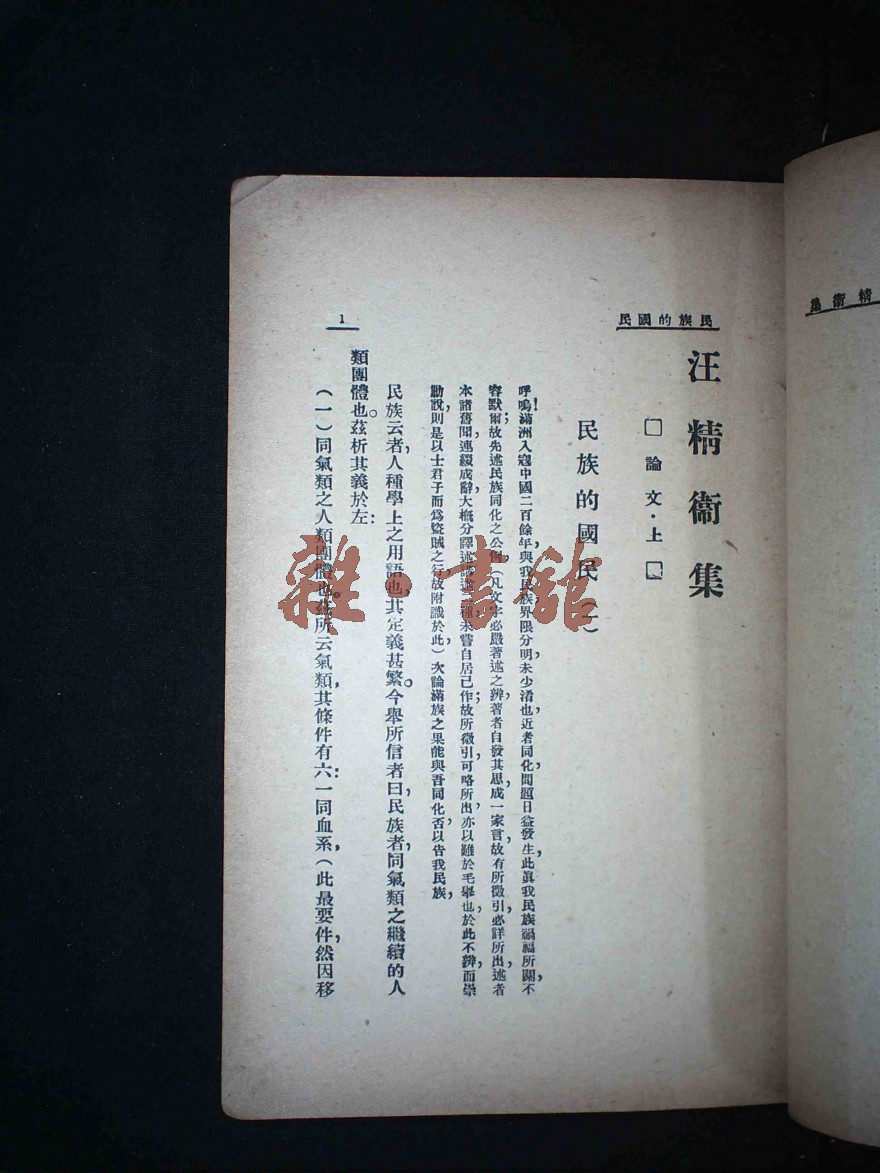 精衛集
民族的國民
1
汪精衞集
□論文·上□
民族的國民(一)
呼嗚!滿洲入寇中國二百餘年,與我民族界限分明,未少淆也,近者同化問題日益發生,此眞我民族禍福所關,不
容默爾;故先述民族同化之公例,(凡文字必嚴著述之辨,著者自發其思,成一家言,故有所徵引,必詳所出,述者
本諸舊聞,連綴成辭,大概分譯述種,未嘗自居己作;故所徵引,可略所出,亦以難於毛舉也,於此不辨,而崇
勦說,則是以士君子而爲盜賊之行,故附識於此)次論滿族之果能與吾同化否,以告我民族,
民族云者,人種學上之用語也,其定義甚繁。今舉所信者,曰民族者,同氣類之繼續的人
類團體也。茲析其義於左:
(一)同氣類之人類團體也。茲所云氣類,其條件有六:一同血系,(此最要件,然因移
雜·書館